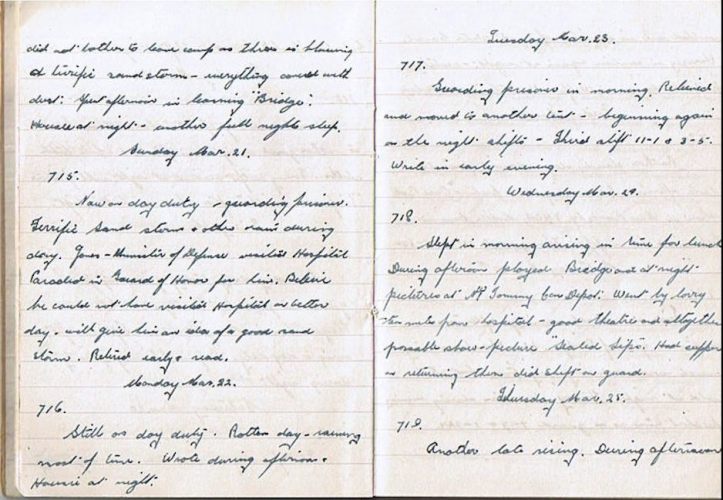 did not bother to leave camp as there is blowing
a terrific sand storm - everything covered with
dust. Spent afternoon in learning "Bridge".
Housie at night - another full nights sleep.
Sunday Mar. 21.
715.
Now on day duty - guarding prisoner.
Terrific sand storm & other rain during
day. Jones - Minister of Defense visited Hospital
Paraded in Guard of Honor for him. Believe
he could not have visited Hospital on better
day - will give him an idea of a good sand
storm. Retired early & read.
Monday Mar. 22.
716.
Still on day duty. Rotten day - raining
most of time. Wrote during afternoon &
Housie at night.
Tuesday Mar. 23.
717.
Guarding prisoner in morning. Relieved
and moved to another tent - beginning again
on the night shifts - Third shift 11-1 & 3-5.
Write in early evening.
Wednesday Mar. 24.
718.
Slept in morning arising in time for lunch
During afternoon played Bridge and at night
pictures at Tommy Depot. Went by lorry
ten miles from hospital - good theatre and
passable show - picture "Sealed Lips". Had supper
on returning then did shift on guard.
Thursday Mar. 25.
719.
Another late rising. During afternoon